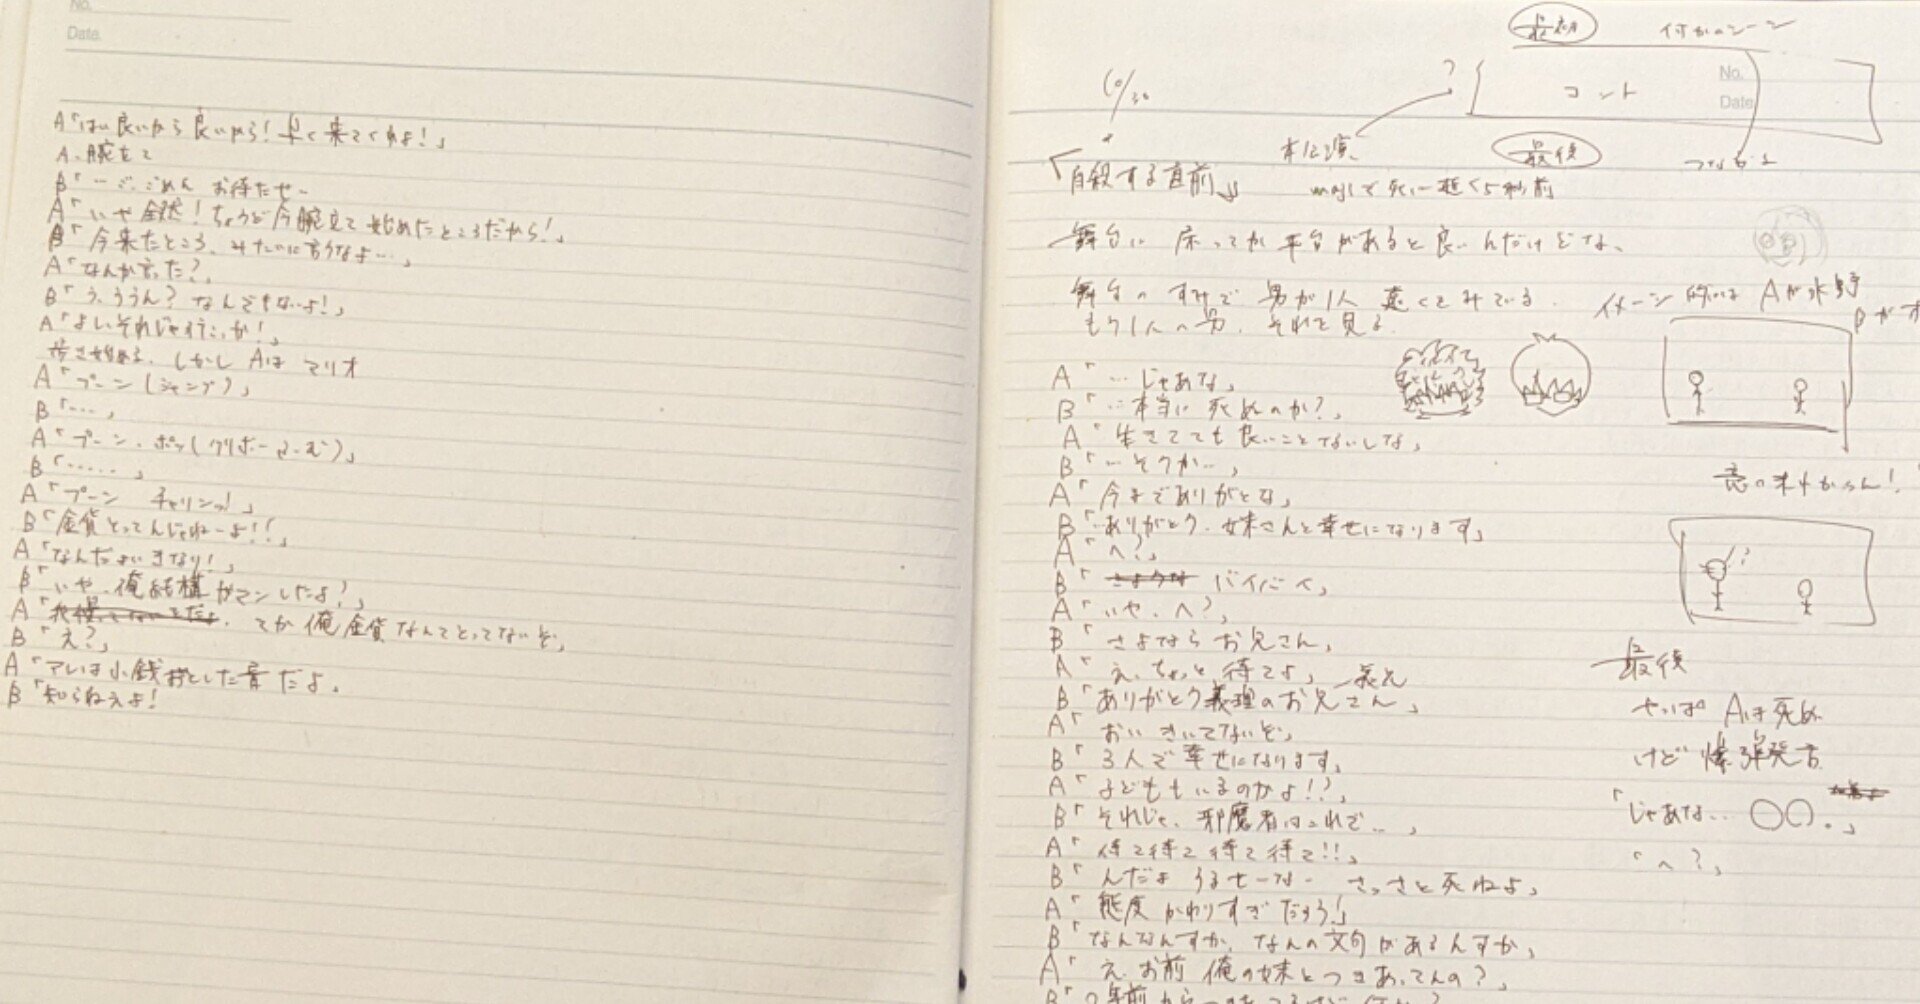 No.
Date.
A「はい良いから良いから！早く来てくれよ！」
A、腕立て
B「…ご、ごめん お待たせ…
A「いや全然！ちょうど今腕立て始めたところだから！」
B「今来たところ、みたいに言うなよ…」
A「なんか言った？」
B「う、ううん？なんでもないよ！」
A「よしそれじゃ行こっか！」
歩き始める、しかし Aは マリオ
A「プーン（ジャンプ）」
B「…」
A「プーン、ポッ（クリボーふむ）」
B「……」
A「プーン チャリンッ！」
B「金貨とってんじゃねーよ！！」
A「なんだよいきなり！」
B「いや、俺結構ガマンしたよ？」
A「てか俺金貨なんてとってないぞ」
B「え？」
A「アレは小銭落とした音だよ。
B「知らねえよ！
最初 何かのシーン
No.
Date
10/30
?
コント
本公演、
最後 つながる
「自殺する直前」
majiで死に近く5秒前
舞台に 床ってか 平台があると良いんだけどな、
舞台のすみで 男が1人 遠くをみている。
もう1人の男、それを見る
イメージ的には Aが水野
Bが
A「…じゃあな」
B「…本当に 死ぬのか？」
A「生きてても良いことないしな」
B「…そうか…」
A「今までありがとな」
B「…ありがとう、妹さんと幸せになります」
A「へ？」
B「バイバイ」
A「いや、へ？」
B「さよなら お兄さん」
A「え、ちょっと 待てよ」
B「ありがとう義理のお兄さん」
A「おい きいてないぞ」
B「3人で幸せになります」
A「子どももいるのかよ！？」
B「それじゃ、邪魔者はこれで…」
A「待て待て待て待て！！」
B「んだよ うるせーなー さっさと死ねよ」
A「態度かわりすぎだろう！」
B「なんなんすか、なんの文句があるんすか」
A「え、お前 俺の妹とつきあってんの？」
B「2年前から
意味わからん！
?
最後
やっぱ Aは死ぬ
けど 爆弾発言
「じゃあな… 〇〇。」
「へ？」